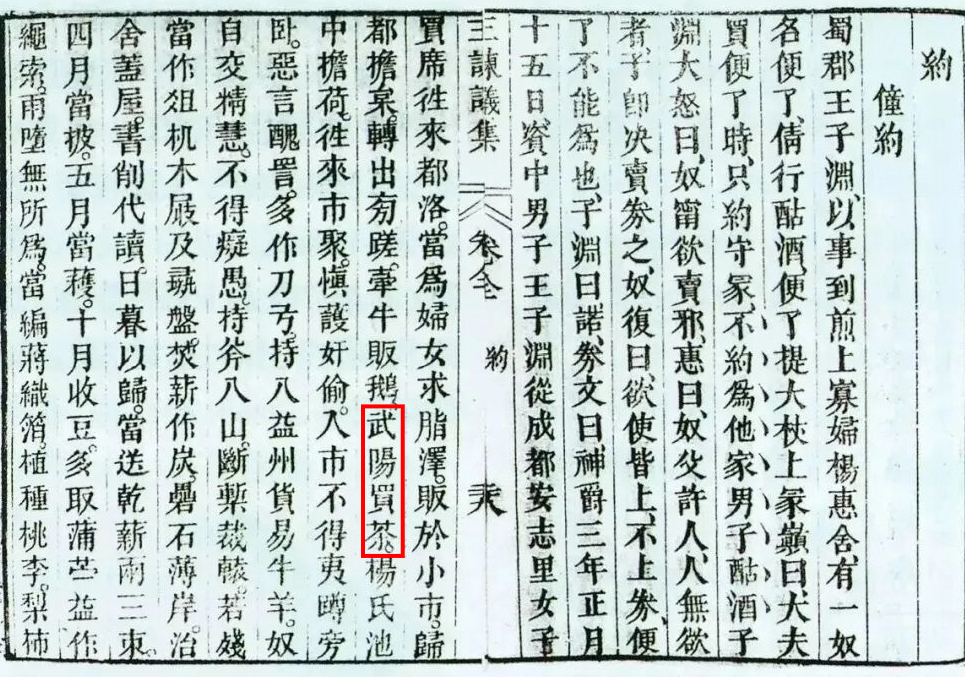 約
僮約
蜀郡王子淵、以事到煎上寡婦楊惠舍、有一奴
名便了、倩行酤酒、便了提大杖上冢巔曰、大夫
買便了時、只約守冢、不約爲他家男子酤酒子
淵大怒曰、奴寗欲賣邪、惠曰、奴父許人、人無欲
者、子卽决賣券之、奴復曰、欲使皆上、不上券、便
了不能爲也、子淵曰諾、券文曰、神爵三年正月
十五日、資中男子王子淵從成都安志里女子
王諫議集 卷全 約
買席徃來都洛。當爲婦女求脂澤。販於小市。歸
都擔枲。轉出旁蹉。牽牛販鵝。武陽買茶。楊氏池
中擔荷。徃來市聚。愼護奸偷。入市不得夷蹲旁
卧。惡言醜詈。多作刀弓。持入益州貨易牛羊。奴
自交精慧。不得癡愚。持斧入山。斷𣙙裁轅。若殘
當作俎机木屐及彘盤。焚薪作炭。礨石薄岸。治
舍蓋屋。書削代讀。日暮以歸。當送乾薪兩三束。
四月當披。五月當穫。十月收豆。多取蒲苧益作
繩索。雨墮無所爲。當編蔣織箔。植種桃李。梨柿